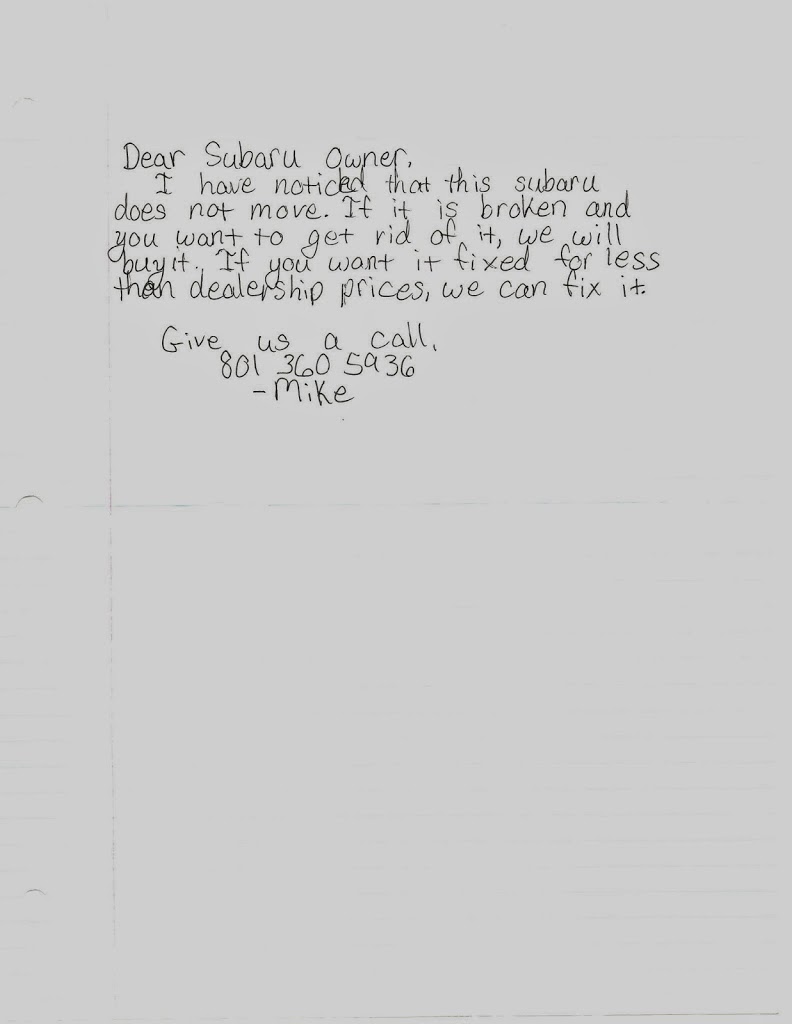 Dear Subaru Owner,
I have noticed that this subaru
does not move. If it is broken and
you want to get rid of it, we will
buy it. If you want it fixed for less
than dealership prices, we can fix it.
Give us a call.
801 360 5936
-Mike